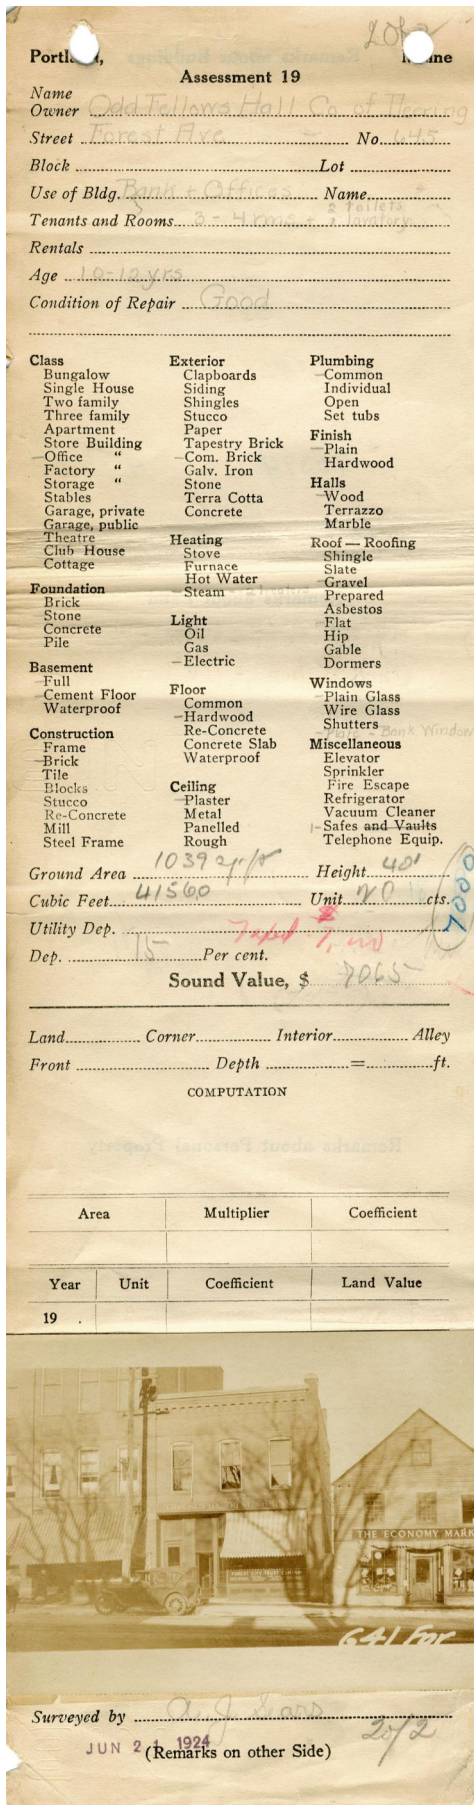 2 of 2
Portland, Maine
Assessment 19
Name
Owner Odd Fellows Hall Co. of Deering
Street Forest Ave No. 645
Block Lot
Use of Bldg. Bank + Offices Name
2 toilets
Tenants and Rooms 3 - 4 rms + 2 lavatory
Rentals
Age 10-12 yrs
Condition of Repair Good
Class
Bungalow
Single House
Two family
Three family
Apartment
Store Building
-Office "
Factory "
Storage "
Stables
Garage, private
Garage, public
Theatre
Club House
Cottage
Foundation
Brick
Stone
Concrete
Pile
Basement
-Full
-Cement Floor
Waterproof
Construction
Frame
-Brick
Tile
Blocks
Stucco
Re-Concrete
Mill
Steel Frame
Exterior
Clapboards
Siding
Shingles
Stucco
Paper
Tapestry Brick
-Com. Brick
Galv. Iron
Stone
Terra Cotta
Concrete
Heating
Stove
Furnace
Hot Water
-Steam
Light
Oil
Gas
-Electric
Floor
Common
-Hardwood
Re-Concrete
Concrete Slab
Waterproof
Ceiling
-Plaster
Metal
Panelled
Rough
Plumbing
-Common
Individual
Open
Set tubs
Finish
-Plain
Hardwood
Halls
-Wood
Terrazzo
Marble
Roof — Roofing
Shingle
Slate
-Gravel
Prepared
Asbestos
-Flat
Hip
Gable
Dormers
Windows
-Plain Glass
Wire Glass
Shutters
-Plate - Bank Window
Miscellaneous
Elevator
Sprinkler
Fire Escape
Refrigerator
Vacuum Cleaner
1-Safes and Vaults
Telephone Equip.
Ground Area 1039 sq. ft Height 40'
Cubic Feet 41560 Unit 20 cts.
7000
Utility Dep.
Taxed $ 7,000
Dep. 15 Per cent.
Sound Value, $ 7065
Land Corner Interior Alley
Front Depth = ft.
COMPUTATION
Remarks about Personal Property
Area Multiplier Coefficient
Year Unit Coefficient Land Value
19 .
THE ECONOMY MARK
FOREST CITY TRUST COMPANY
641 For
Surveyed by A. J. Sears
JUN 21 1924
(Remarks on other Side)
2 of 2